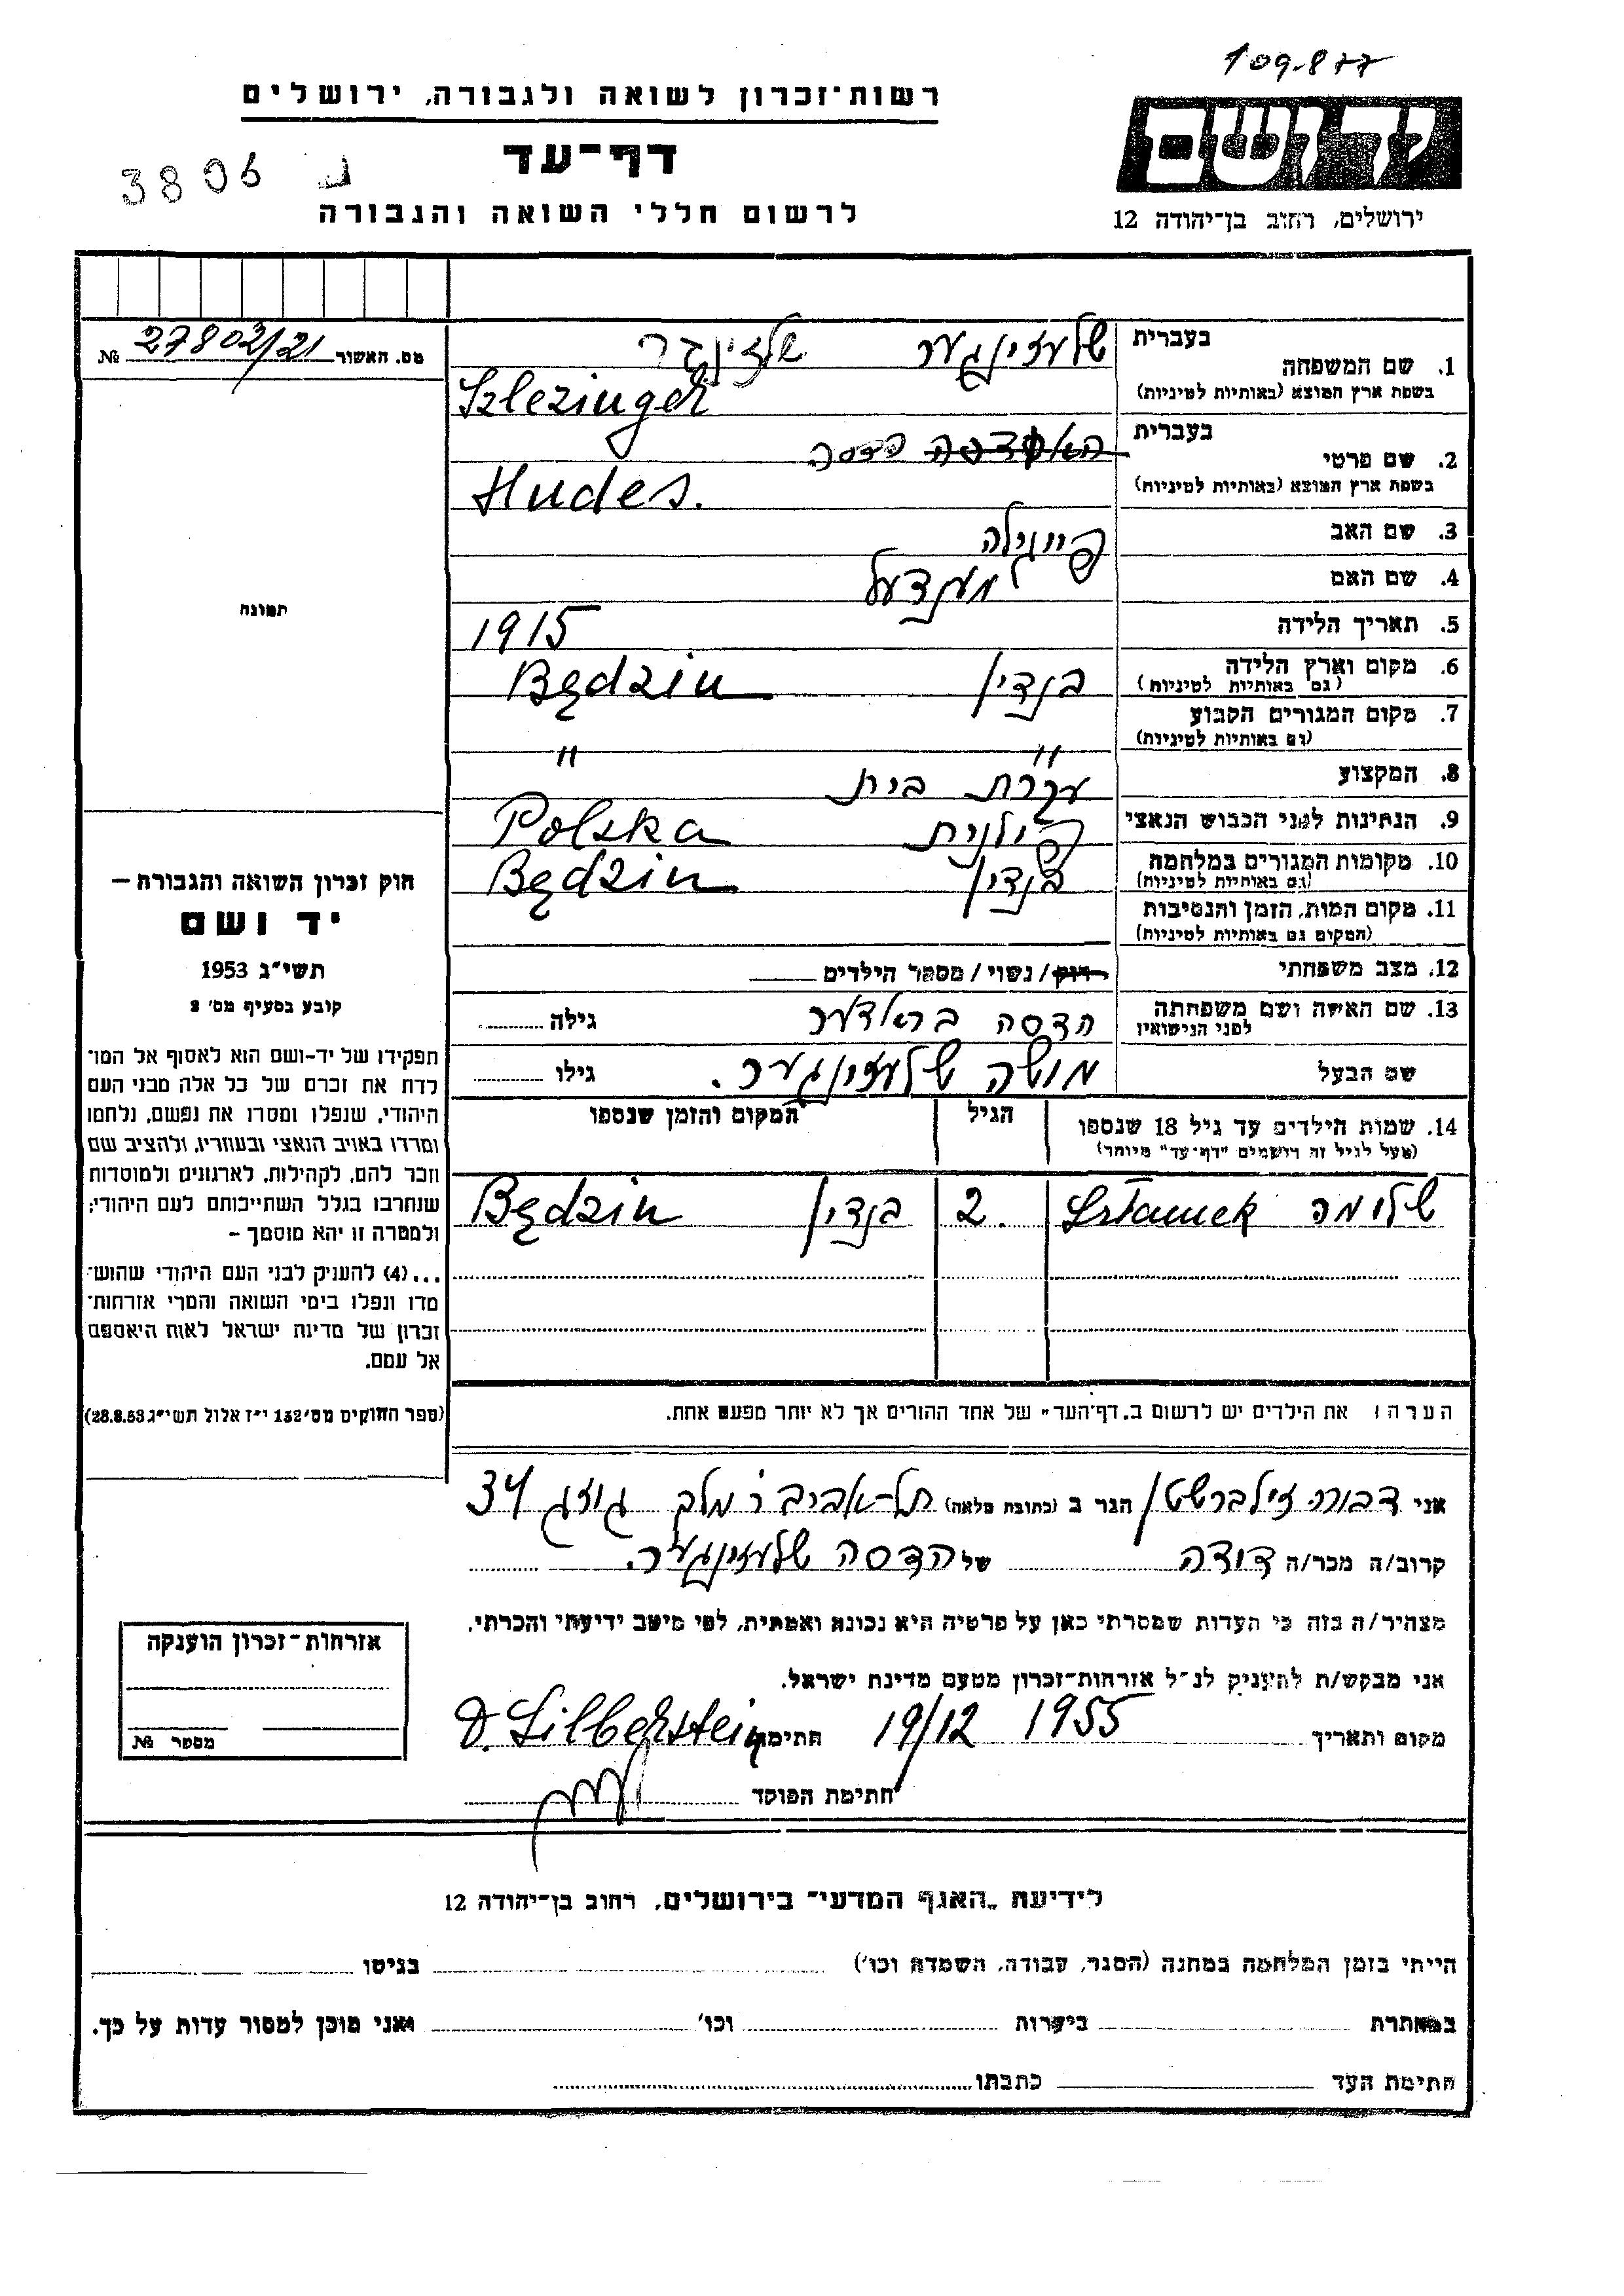 109-877
רשות-זכרון לשואה ולגבורה, ירושלים
ידושם
דף-עד
3806
לרשום חללי השואה והגבורה
ירושלים, רחוב בן-יהודה 12
מס. האשור 27802/21 №
1. שם המשפחה
בעברית שלעזינגער שלזינגר
בשפת ארץ המוצא (באותיות לטיניות) Szlezinger
2. שם פרטי
בעברית הדסה
בשפת ארץ המוצא (באותיות לטיניות) Hudes.
3. שם האב
4. שם האם
5. תאריך הלידה 1915
6. מקום וארץ הלידה בנדין Będzin
(גם באותיות לטיניות)
7. מקום המגורים הקבוע
(גם באותיות לטיניות) " "
8. המקצוע עקרת בית
9. הנתינות לפני הכבוש הנאצי פולנית Polska
10. מקומות המגורים במלחמה בנדין Będzin
(גם באותיות לטיניות)
11. מקום המות, הזמן והנסיבות
(המקום גם באותיות לטיניות)
12. מצב משפחתי רוק / נשוי / מספר הילדים
13. שם האשה ושם משפחתה הדסה גילה
לפני הנישואין
שם הבעל משה שלעזינגער. גילו
14. שמות הילדים עד גיל 18 שנספו הגיל המקום והזמן שנספו
(מעל לגיל זה רושמים "דף-עד" מיוחד)
שלומה Szlamek 2. בנדין Będzin
הערה: את הילדים יש לרשום ב"דף-העד" של אחד ההורים אך לא יותר מפעם אחת.
תמונה
חוק זכרון השואה והגבורה –
יד ושם
תשי"ג 1953
קובע בסעיף מס' 2
תפקידו של יד-ושם הוא לאסוף אל המו־
לדת את זכרם של כל אלה מבני העם
היהודי, שנפלו ומסרו את נפשם, נלחמו
ומרדו באויב הנאצי ובעוזריו, ולהציב שם
וזכר להם, לקהילות, לארגונים ולמוסדות
שנחרבו בגלל השתייכותם לעם היהודי;
ולמטרה זו יהא מוסמך –
...(4) להעניק לבני העם היהודי שהוש־
מדו ונפלו בימי השואה והמרי אזרחות־
זכרון של מדינת ישראל לאות היאספם
אל עמם.
(ספר החוקים מס' 132 י"ז אלול תשי"ג 28.8.53)
אני דבורה זילברשטין הגר ב (כתובת מלאה) תל-אביב 34
קרוב/ה מכר/ה דודה של הדסה שלעזינגער.
מצהיר/ה בזה כי העדות שמסרתי כאן על פרטיה היא נכונה ואמתית, לפי מיטב ידיעתי והכרתי.
אני מבקש/ת להעניק לנ"ל אזרחות-זכרון מטעם מדינת ישראל.
מקום ותאריך 19/12 1955 חתימה D. Silberstein
חתימת הפוקד
אזרחות-זכרון הוענקה
מספר №
לידיעת "האגף המדעי" בירושלים, רחוב בן-יהודה 12
הייתי בזמן המלחמה במחנה (הסגר, עבודה, השמדה וכו') בגיטו
במחתרת ביערות וכו' ואני מוכן למסור עדות על כך.
חתימת העד כתבתו